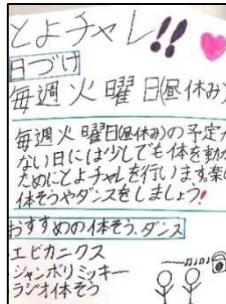 とよチャレ!!
日づけ
毎週火曜日(昼休み)
毎週火曜日(昼休み)の予定が
ない日には少しでも体を動か
ためにとよチャレを行います楽し
体そうやダンスをしましょう!
おすすめの体そう、ダンス
エビカニクス
ジャンボリミッキー
ラジオ体そう